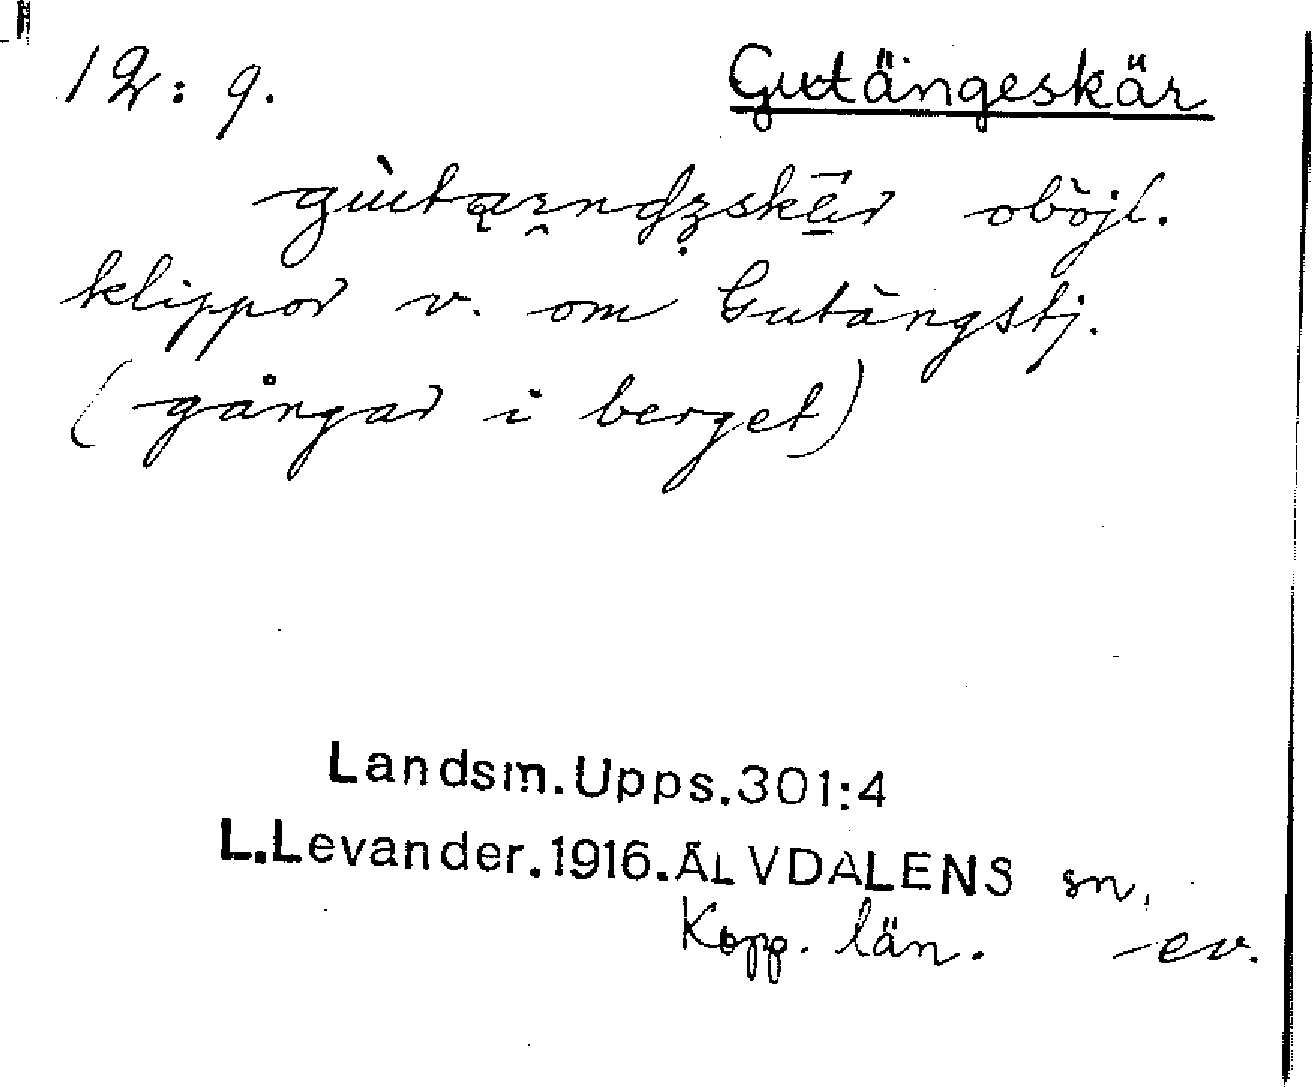 12: 9. Gutängeskär
oböjl.
klippor v. om Gutängstj.
(gångar i berget)
Landsm.Upps.301:4
L.Levander.1916.ÄLVDALENS sn.
Kopp. län. -ev.